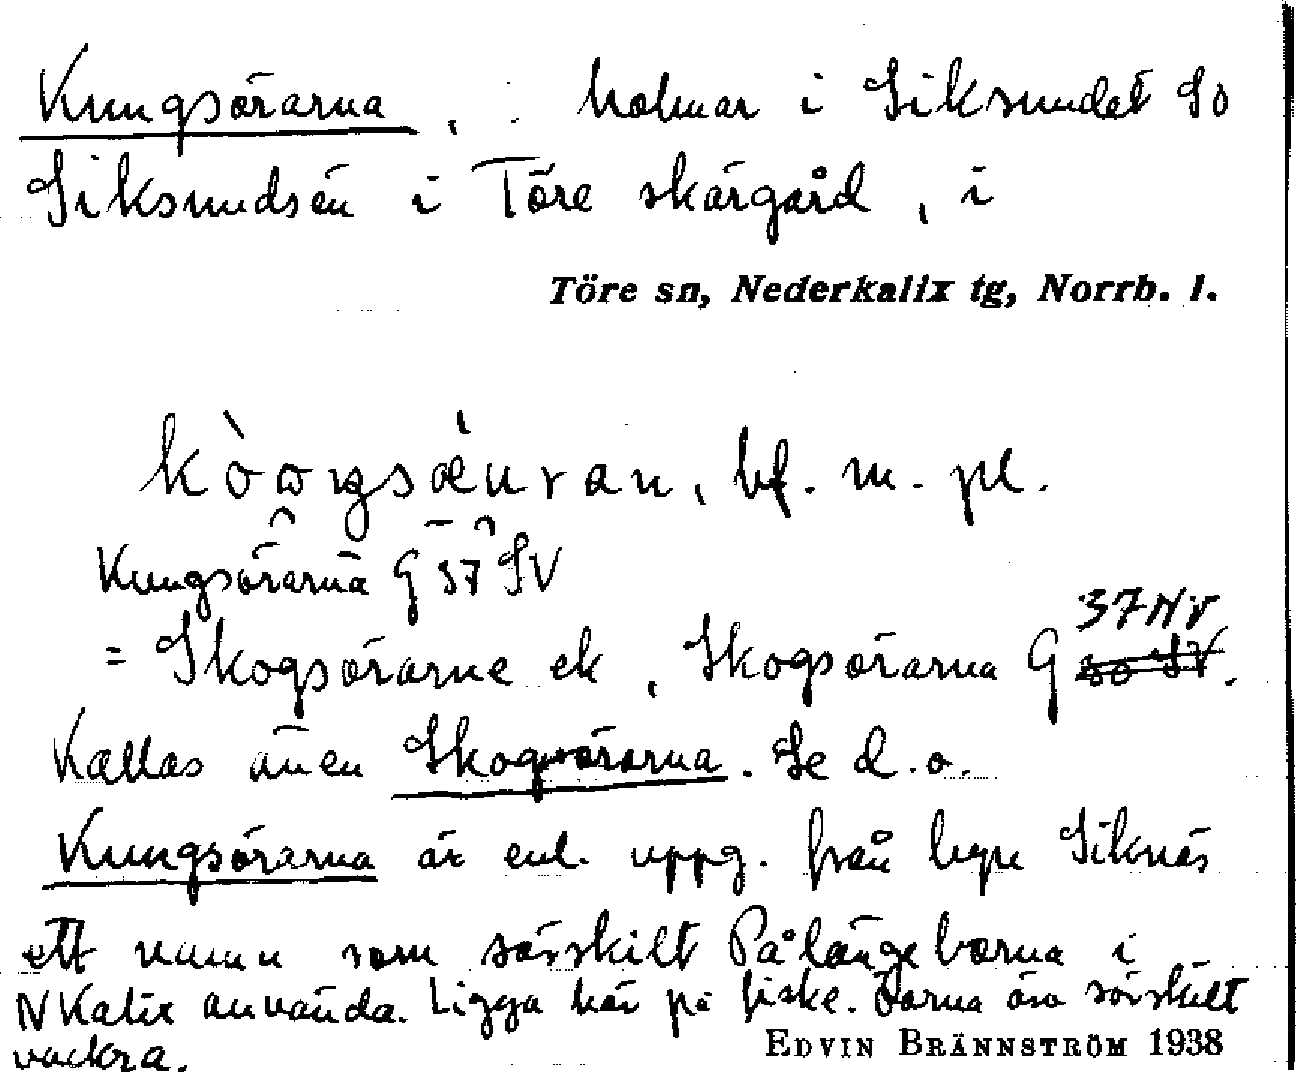 Kungsörarna, holmar i Siksundet SO
Siksundsön i Töre skärgård, i
Töre sn, Nederkalix tg, Norrb. l.
bf. m. pl.
Kungsörarna G 37 SV
= Skogsörarne ek, Skogsörarna G 37 NV
Kallas även Skogsörarna. Se d.o.
Kungsörarna är enl. uppg. från byn Siknäs
ett namn som särskilt Pålängeborna i
NKalix använda. Ligga här på fiske. Öarna äro särskilt
vackra.
EDVIN BRÄNNSTRÖM 1938